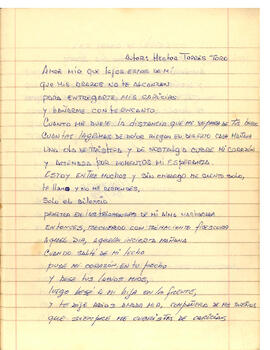 Autor: Hector Torres Toro
Amor mio que lejos estas de mi
que mis brazos no te alcanzan
para entregarte mis caricias
y bañarme con tu encanto
Cuanto me duele la distancia que me separa de tus
Cuantas lagrimas de dolor riegan en desierto cada mañana
Una ola de tristeza y de nostalgia cubre mi corazón
y por momentos mi esperanza.
Estoy entre muchos y sin embargo me siento solo,
te llamo y no me respondes,
Solo el silencio
penetra en los de mi alma
Entonces, recuerdo con
Aquel dia, aquella incierta mañana
Cuando sali de mi lecho
puse mi corazón en tu pecho
y bese tus labios mios,
luego bese a mi hija en la frente,
y te dije adios amada mia, compañera de mis sueños
que siempre me cubriste de caricias,